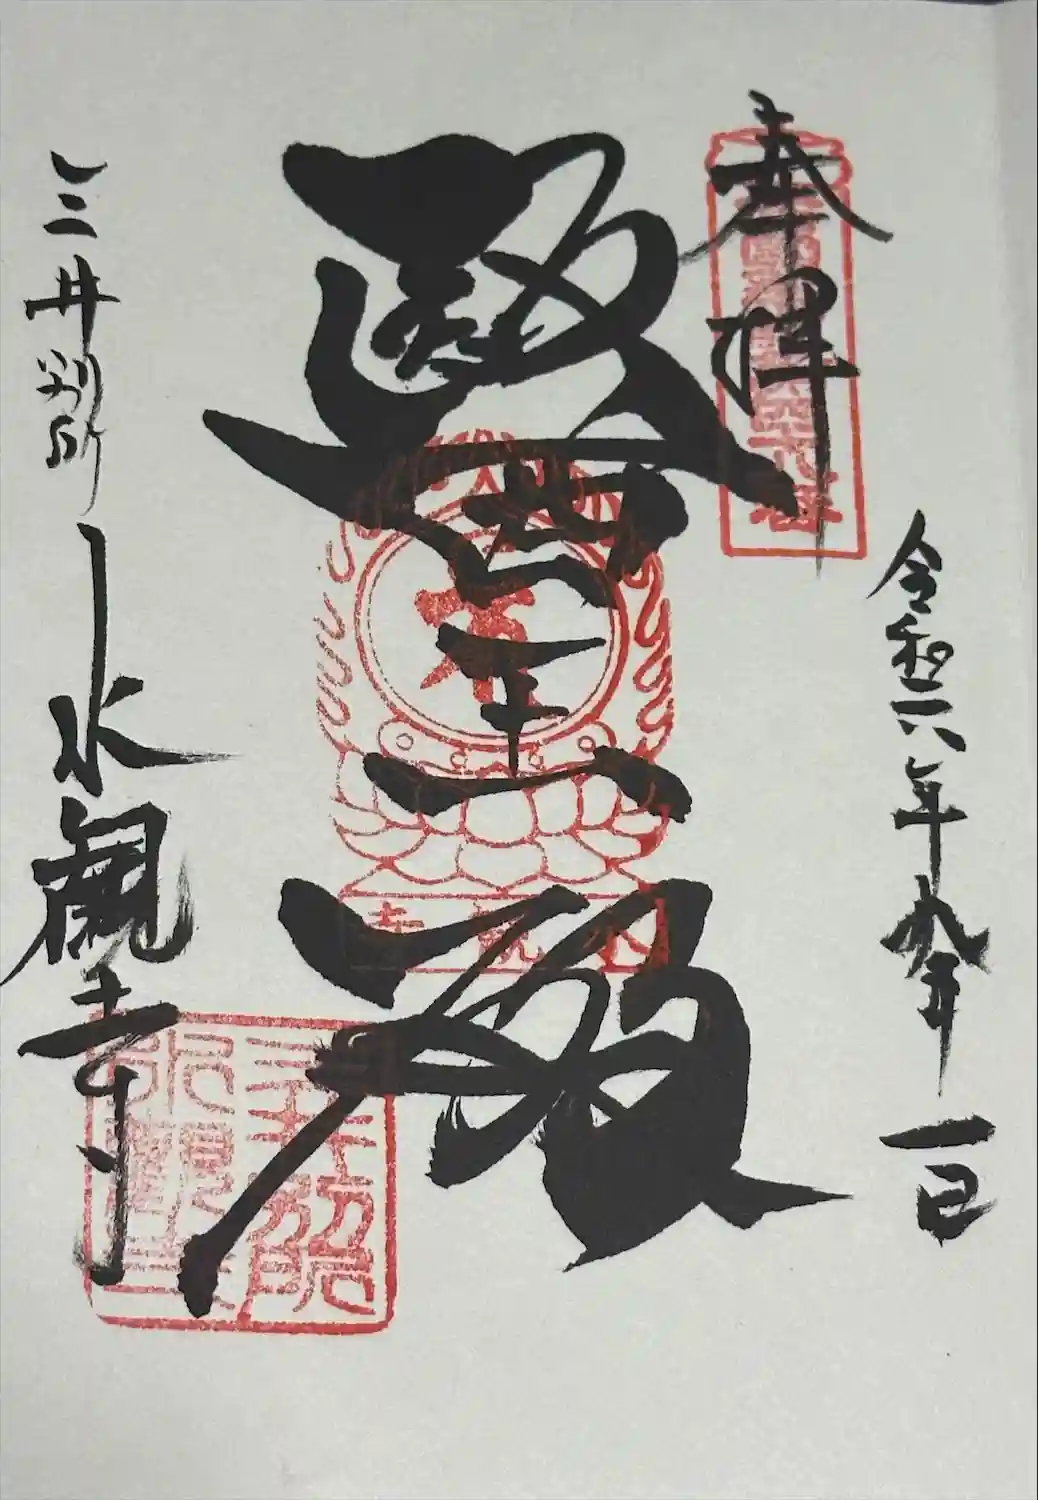 奉拝
令和六年九月一日
醫王殿
三井別所
水観寺
水観寺